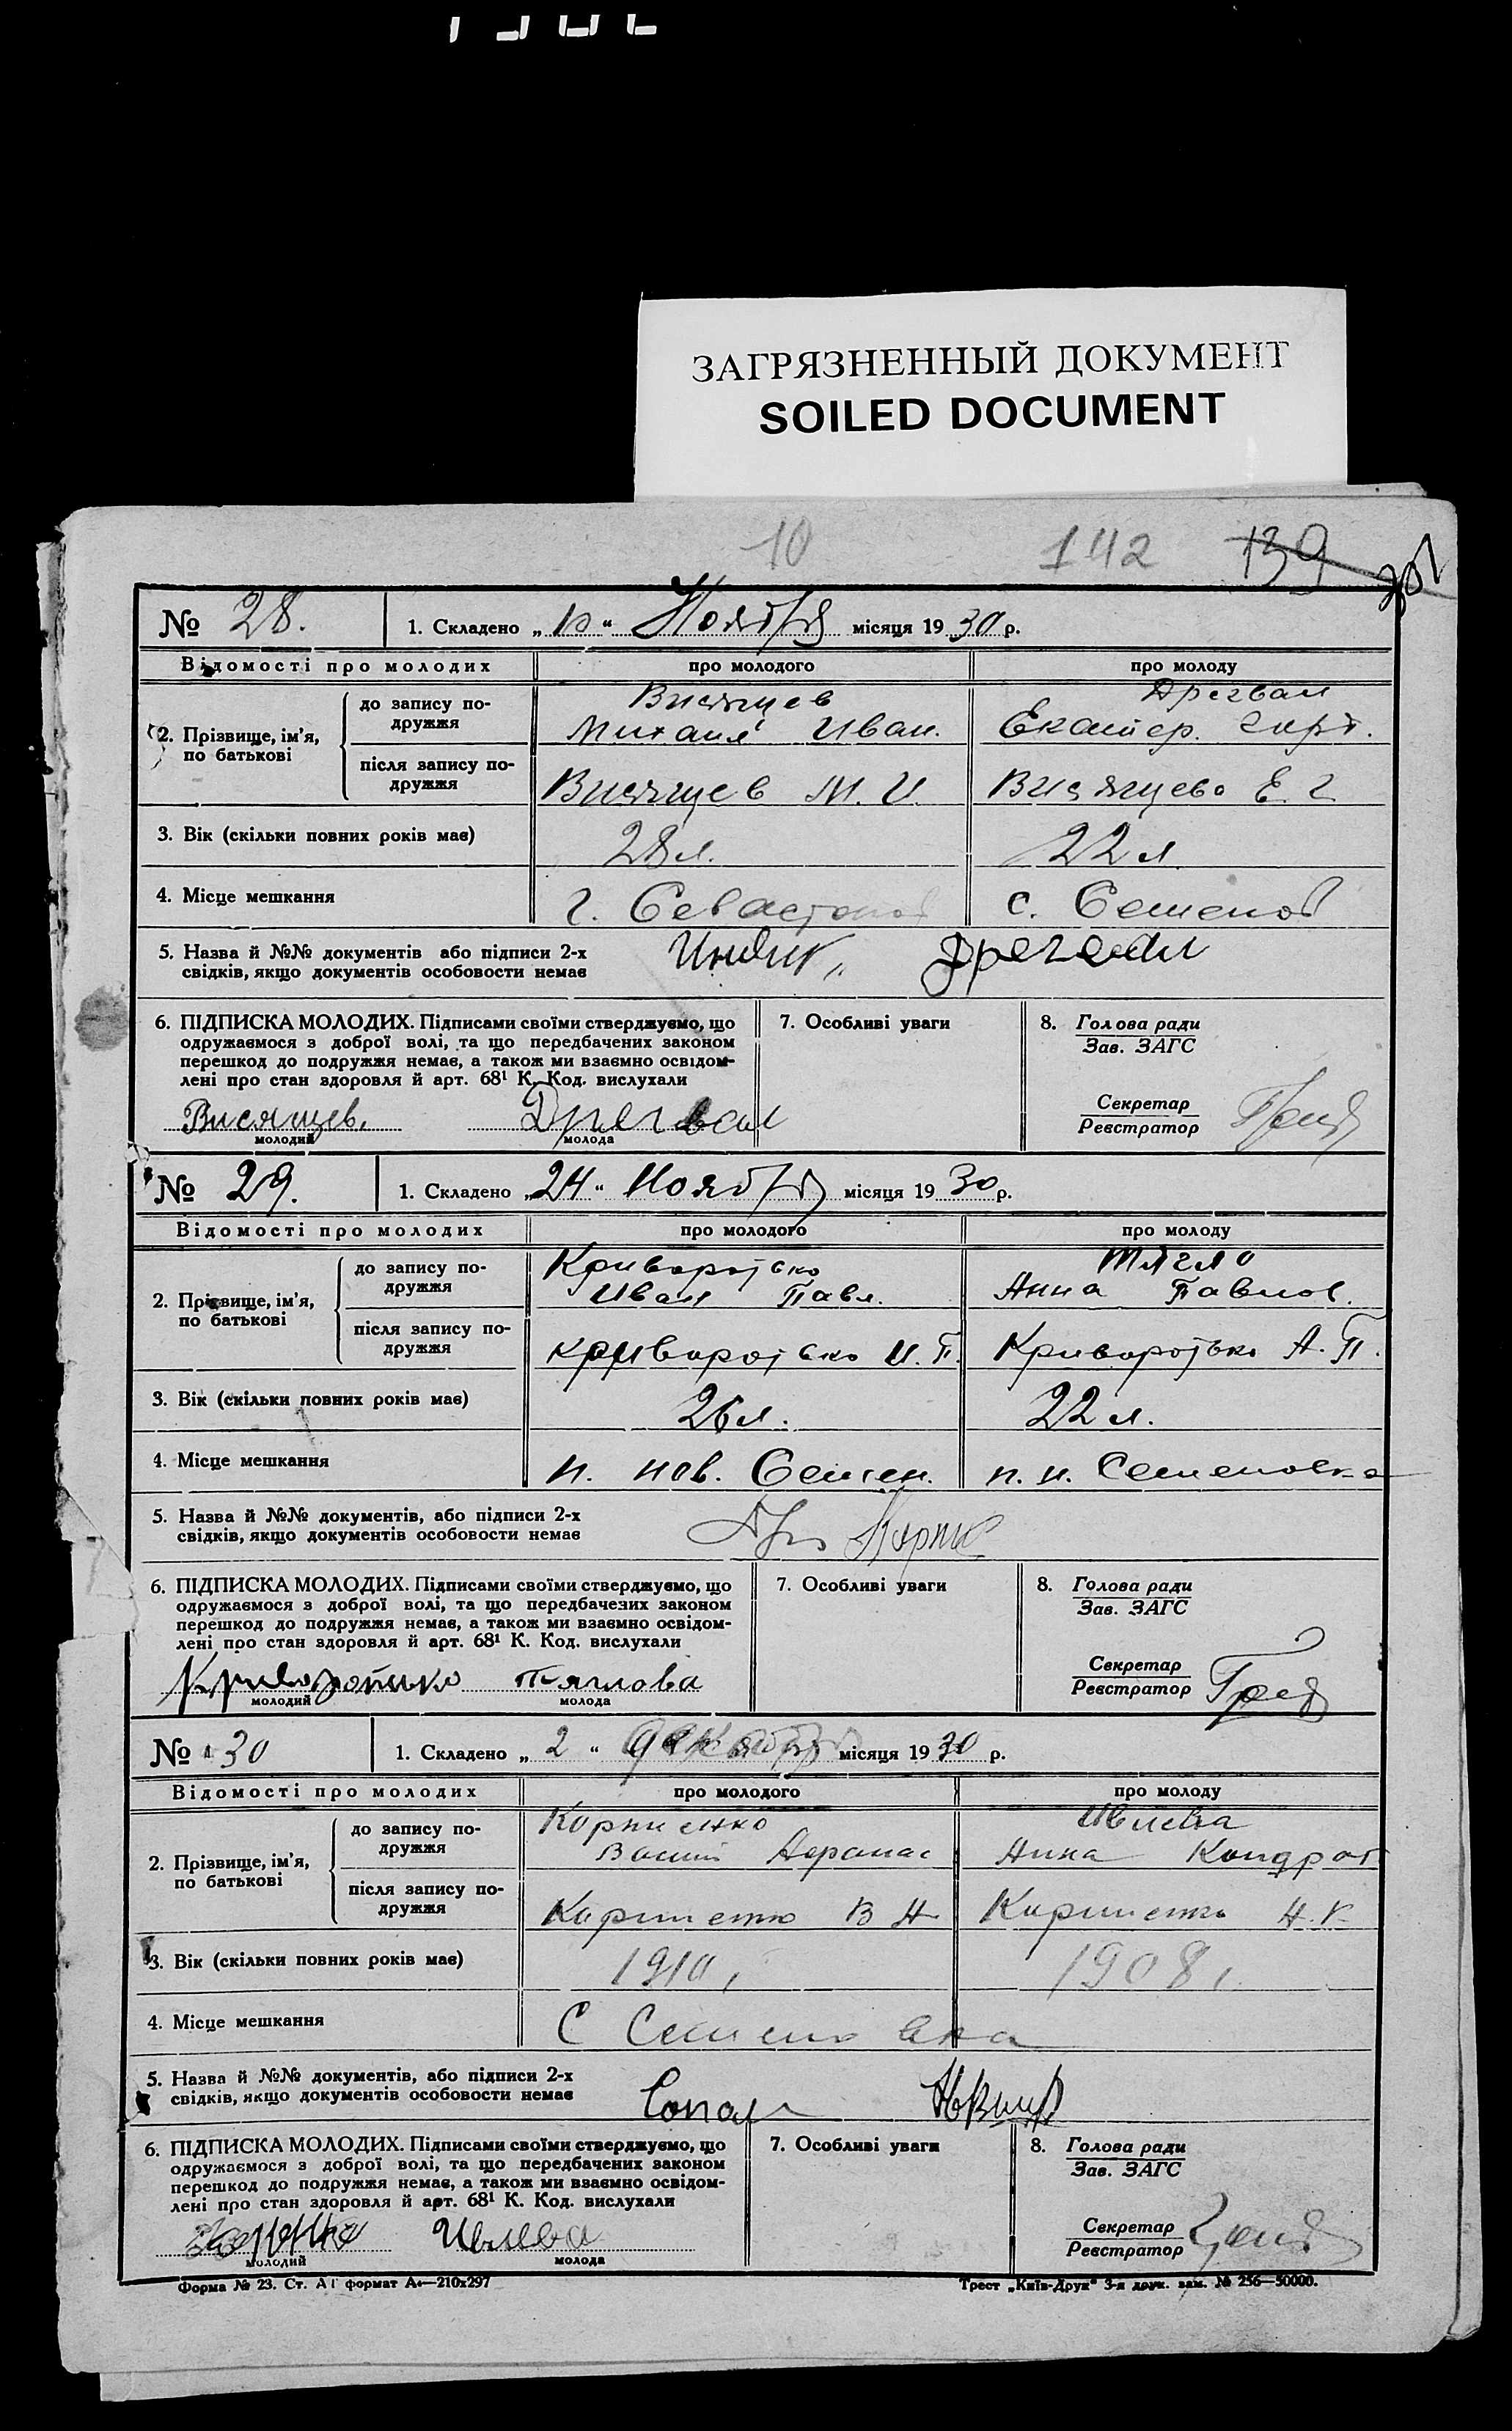 ЗАГРЯЗНЕННЫЙ ДОКУМЕНТ
SOILED DOCUMENT
10 142 139
№ 28. 1. Складено „10“ Ноября місяця 1930 р.
Відомості про молодих про молодого про молоду
2. Прізвище, ім'я, по батькові
до запису подружжя
Висящев Дрегвал
Михаил Иван. Екатер. Григ.
після запису подружжя
Висящев М. И. Висящева Е. Г.
3. Вік (скільки повних років має) 28 л. 22 л.
4. Місце мешкання г. Севастопол с. Семенов
5. Назва й №№ документів або підписи 2-х
свідків, якщо документів особовости немає
Индик, Дрегвал
6. ПІДПИСКА МОЛОДИХ. Підписами своїми стверджуємо, що
одружаємося з доброї волі, та що передбачених законом
перешкод до подружжя немає, а також ми взаємно освідом-
лені про стан здоровля й арт. 68¹ К. Код. вислухали
Висящев. Дрегвал
молодий молода
7. Особливі уваги
8. Голова ради
Зав. ЗАГС
Секретар
Реєстратор
№ 29. 1. Складено „24“ Ноября місяця 1930 р.
Відомості про молодих про молодого про молоду
2. Прізвище, ім'я, по батькові
до запису подружжя
Криворотько Тягло
Иван Павл. Анна Павлов.
після запису подружжя
Криворотько И. П. Криворотько А. П.
3. Вік (скільки повних років має) 26 л. 22 л.
4. Місце мешкання п. нов. Семен. п. н. Семеновка
5. Назва й №№ документів, або підписи 2-х
свідків, якщо документів особовости немає
6. ПІДПИСКА МОЛОДИХ. Підписами своїми стверджуємо, що
одружаємося з доброї волі, та що передбачених законом
перешкод до подружжя немає, а також ми взаємно освідом-
лені про стан здоровля й арт. 68¹ К. Код. вислухали
Криворотько Тяглова
молодий молода
7. Особливі уваги
8. Голова ради
Зав. ЗАГС
Секретар
Реєстратор
№ 30 1. Складено „2“ декабря місяця 1930 р.
Відомості про молодих про молодого про молоду
2. Прізвище, ім'я, по батькові
до запису подружжя
Корниенко Ивлева
Васил Афанас Анна Кондрат
після запису подружжя
Корниенко В А Корниенко А. К.
3. Вік (скільки повних років має) 1910, 1908,
4. Місце мешкання С Семеновка
5. Назва й №№ документів, або підписи 2-х
свідків, якщо документів особовости немає
6. ПІДПИСКА МОЛОДИХ. Підписами своїми стверджуємо, що
одружаємося з доброї волі, та що передбачених законом
перешкод до подружжя немає, а також ми взаємно освідом-
лені про стан здоровля й арт. 68¹ К. Код. вислухали
Ивлева
молодий молода
7. Особливі уваги
8. Голова ради
Зав. ЗАГС
Секретар
Реєстратор
Форма № 23. Ст. АІ формат А₄—210х297 Трест „Київ-Друк“ 3-я друк. зам. № 256—50000.